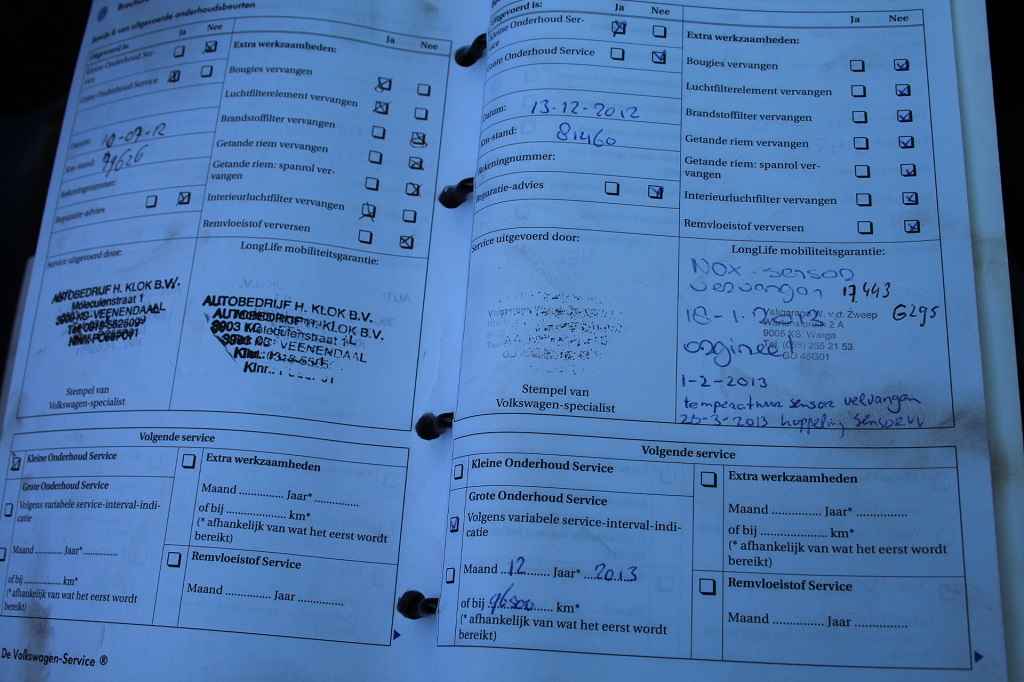 Brochure
beurt 6 van uitgevoerde onderhoudsbeurten
Uitgevoerd is:
Ja Nee
Kleine Onderhoud Ser-
vice
Grote Onderhoud Service
Datum: 10-07-12
Km-stand:
Rekeningnummer:
Reparatie-advies
Service uitgevoerd door:
AUTOBEDRIJF H. KLOK B.V.
Moleculenstraat 1
VEENENDAAL
Stempel van
Volkswagen-specialist
Ja Nee
Extra werkzaamheden:
Bougies vervangen
Luchtfilterelement vervangen
Brandstoffilter vervangen
Getande riem vervangen
Getande riem: spanrol ver-
vangen
Interieurluchtfilter vervangen
Remvloeistof verversen
LongLife mobiliteitsgarantie:
AUTOBEDRIJF H. KLOK B.V.
AUTOBEDRIJF H. KLOK B.V.
Moleculenstraat 1
VEENENDAAL
Volgende service
Kleine Onderhoud Service
Grote Onderhoud Service
Volgens variabele service-interval-indi-
catie
Maand ........... Jaar* ...........
of bij ............... km*
(* afhankelijk van wat het eerst wordt
bereikt)
Extra werkzaamheden
Maand .............. Jaar* ..............
of bij ..................... km*
(* afhankelijk van wat het eerst wordt
bereikt)
Remvloeistof Service
Maand .............. Jaar ..............
De Volkswagen-Service ®
Uitgevoerd is:
Ja Nee
Kleine Onderhoud Ser-
vice
Grote Onderhoud Service
Datum: 13-12-2012
Km-stand: 81460
Rekeningnummer:
Reparatie-advies
Service uitgevoerd door:
Stempel van
Volkswagen-specialist
Ja Nee
Extra werkzaamheden:
Bougies vervangen
Luchtfilterelement vervangen
Brandstoffilter vervangen
Getande riem vervangen
Getande riem: spanrol ver-
vangen
Interieurluchtfilter vervangen
Remvloeistof verversen
LongLife mobiliteitsgarantie:
NOX-sensor
vervangen 17443
G295
v.d. Zweep
2 A
Warga
origineel
1-2-2013
temperatuur sensor vervangen
Volgende service
Kleine Onderhoud Service
Grote Onderhoud Service
Volgens variabele service-interval-indi-
catie
Maand ..12.......... Jaar* ...2013
of bij 96500...... km*
(* afhankelijk van wat het eerst wordt
bereikt)
Extra werkzaamheden
Maand ............... Jaar* ...............
of bij ..................... km*
(* afhankelijk van wat het eerst wordt
bereikt)
Remvloeistof Service
Maand ............... Jaar ...............